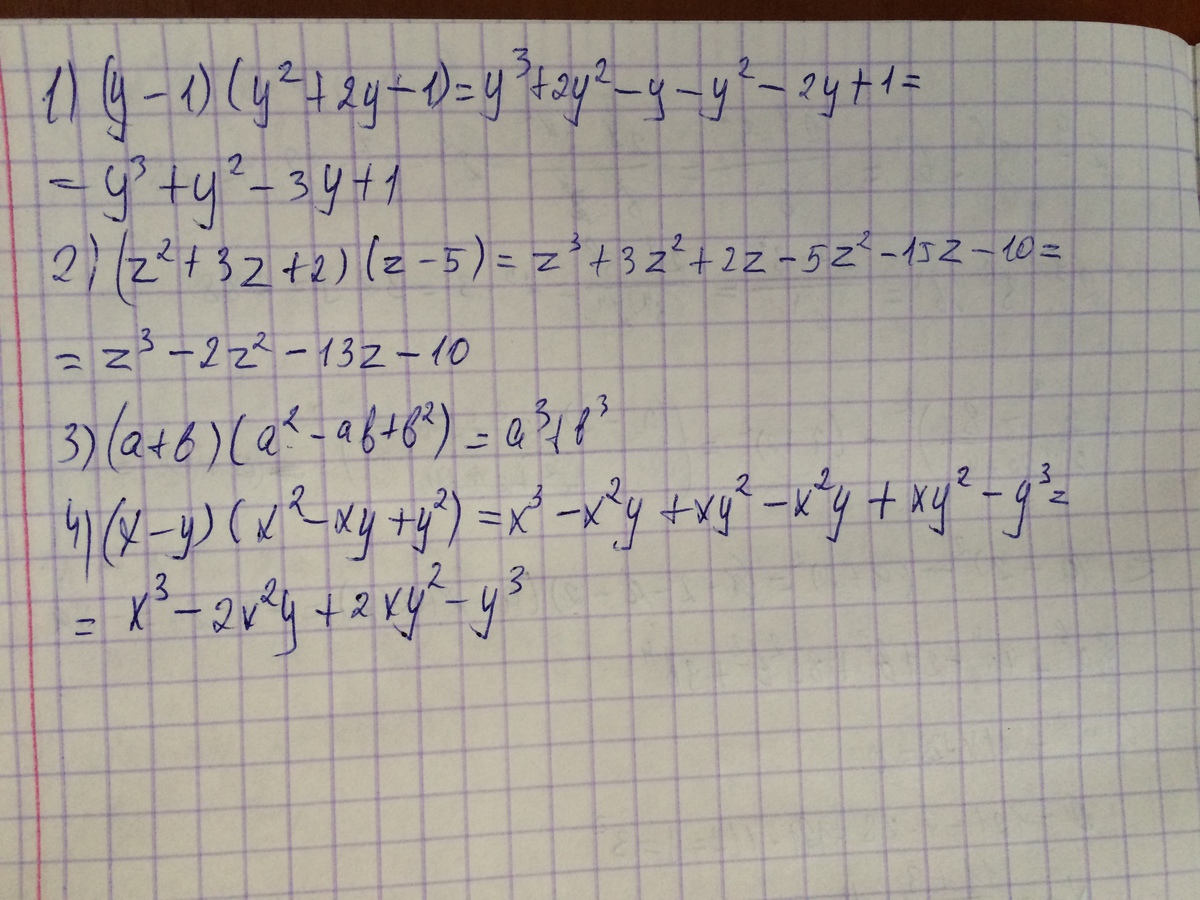 1) (y - 1) (y² + 2y - 1) = y³ + 2y² - y - y² - 2y + 1 =
= y³ + y² - 3y + 1
2) (z² + 3z + 2) (z - 5) = z³ + 3z² + 2z - 5z² - 15z - 10 =
= z³ - 2z² - 13z - 10
3) (a + b) (a² - ab + b²) = a³ + b³
4) (x - y) (x² - xy + y²) = x³ - x²y + xy² - x²y + xy² - y³ =
= x³ - 2x²y + 2xy² - y³